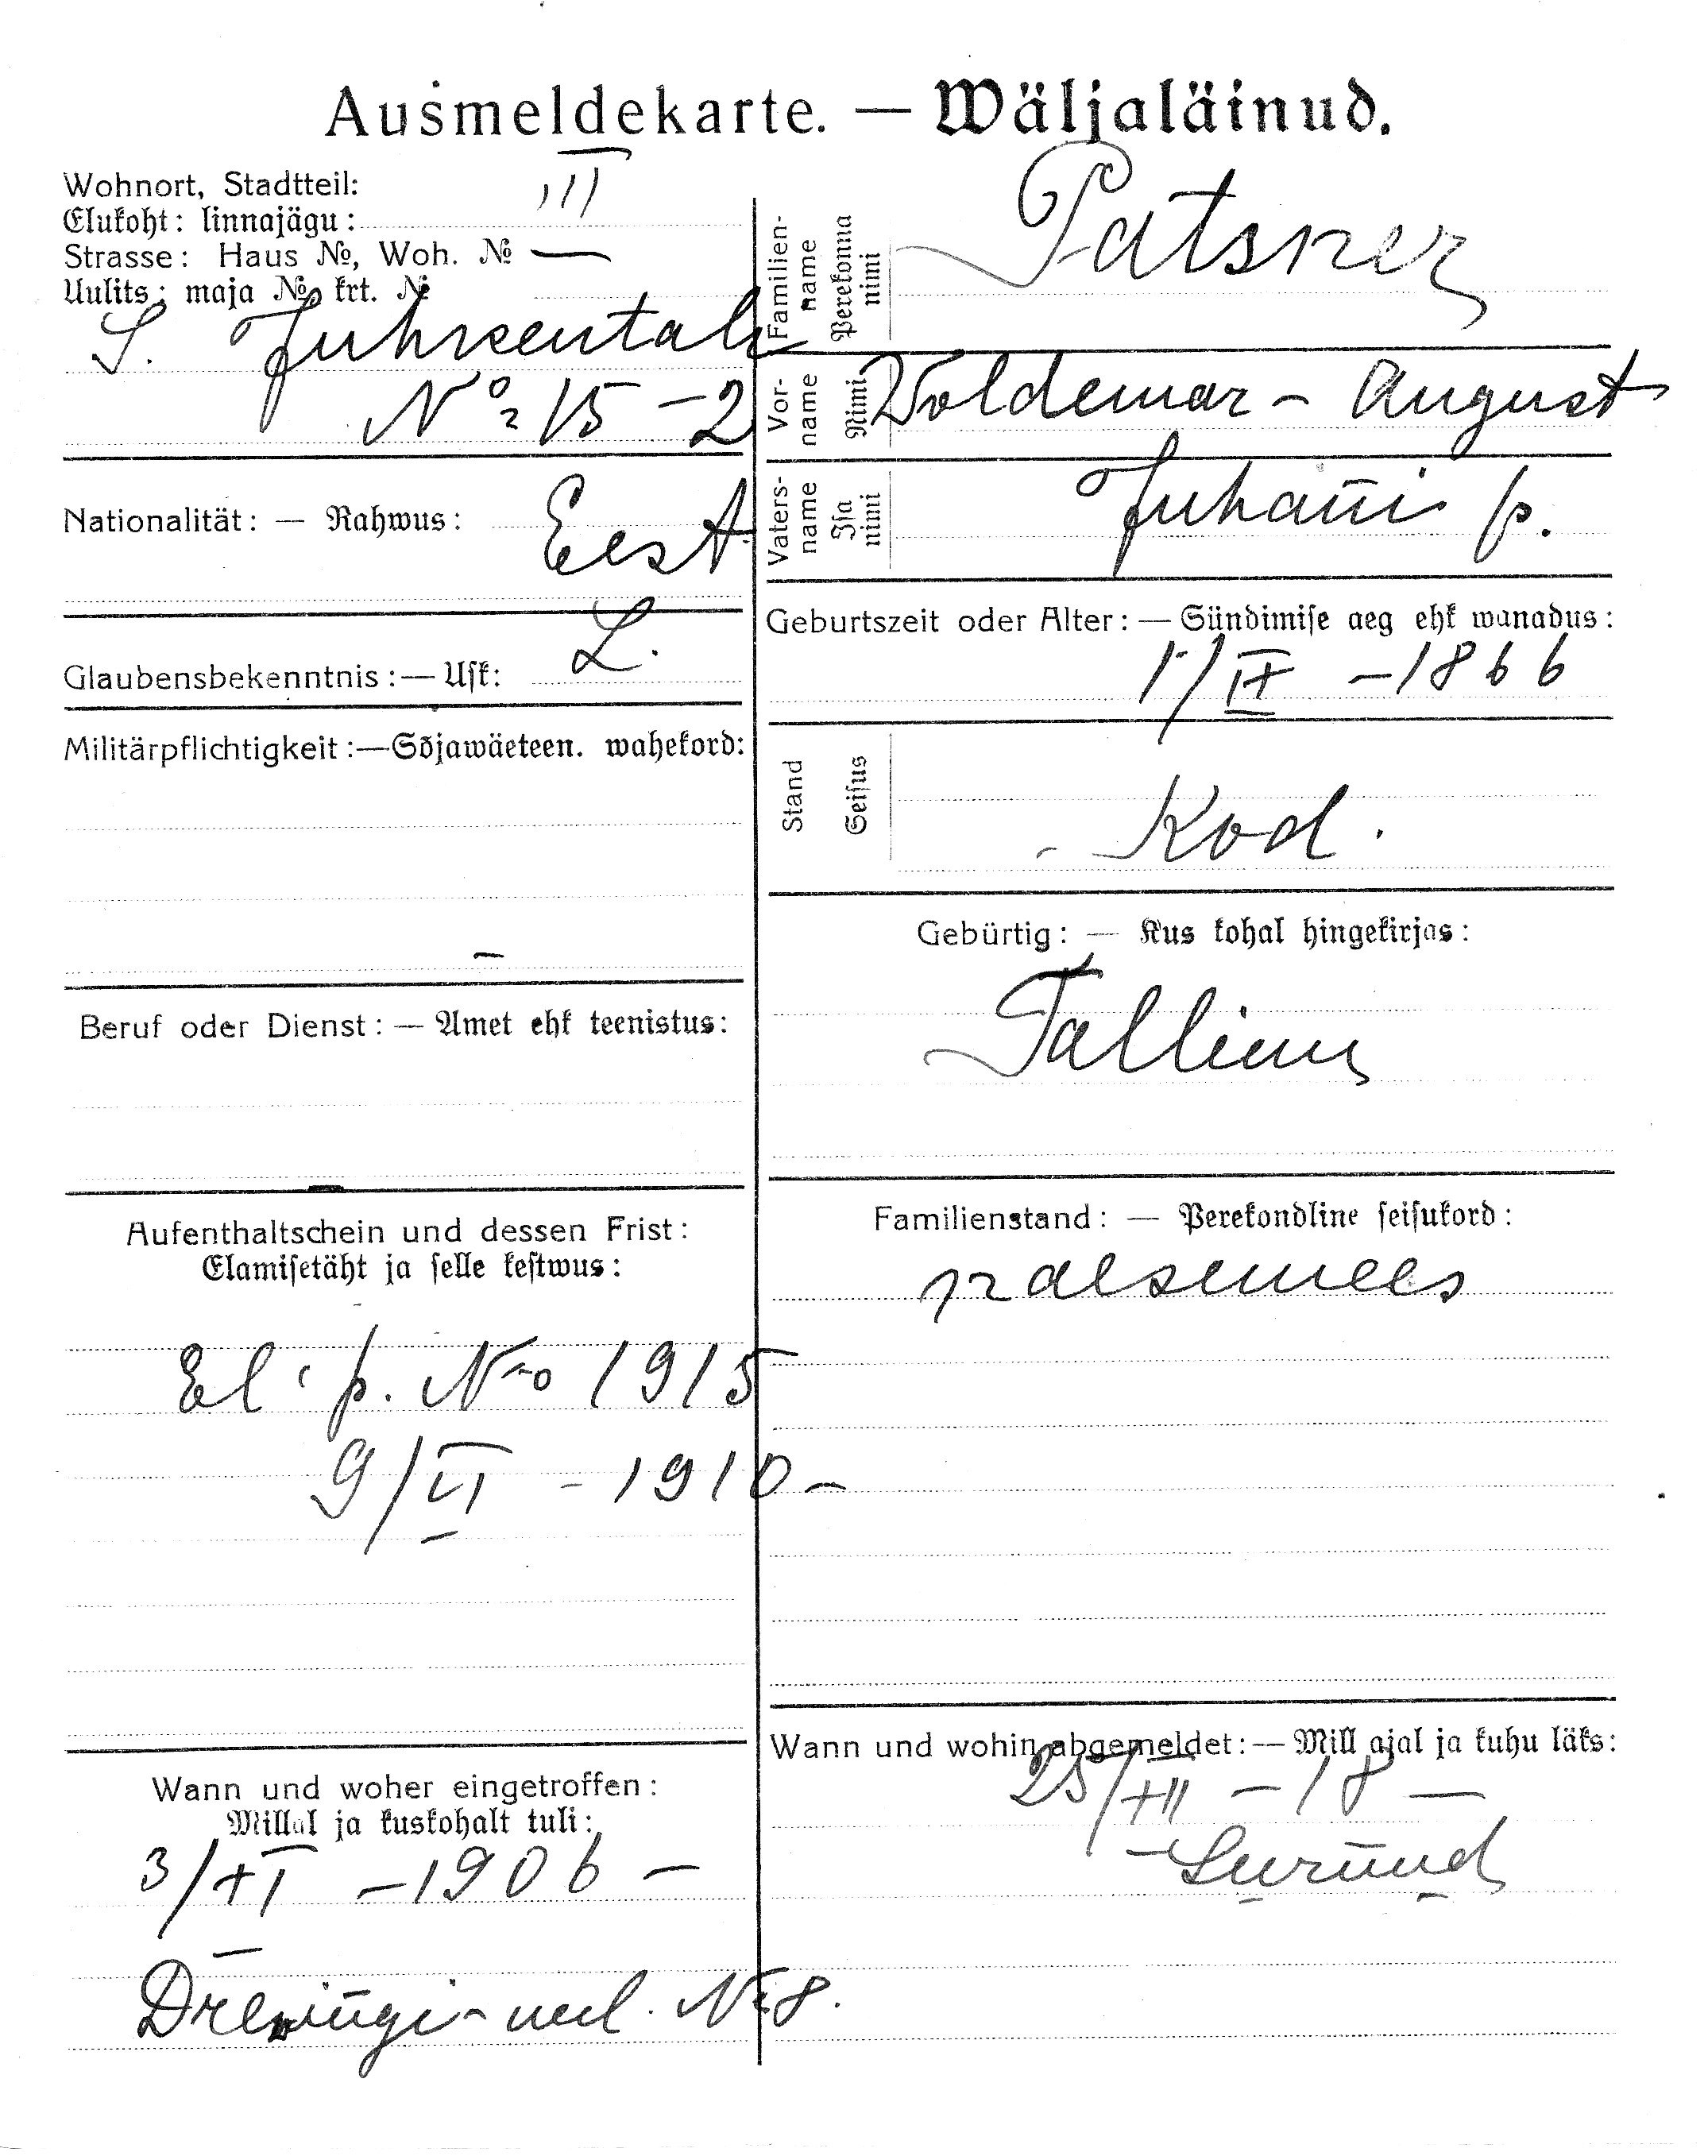 Ausmeldekarte. — Wäljaläinud.
Wohnort, Stadtteil:
Elukoht: linnajägu: III
Strasse: Haus №, Woh. № —
Uulits: maja № krt. №
S. Juhkentali
№ 15 – 2
Nationalität: — Rahwus: Eest
Glaubensbekenntnis: — Usk: L.
Militärpflichtigkeit: — Sõjawäeteen. wahekord:
–
Beruf oder Dienst: — Amet ehk teenistus:
Aufenthaltschein und dessen Frist:
Elamisetäht ja selle kestwus:
El. p. No 1915
9/VI - 1910 –
Wann und woher eingetroffen:
Millal ja kuskohalt tuli:
3/XI – 1906 –
Drewingi - uul. № 8.
Familien-name Perekonna nimi Patsner
Vor-name Nimi Woldemar – August
Vaters-name Isa nimi Juhani p.
Geburtszeit oder Alter: — Sündimise aeg ehk wanadus:
1/IX – 1866
Stand Seisus Kod.
Gebürtig: — Kus kohal hingekirjas:
Tallinn
Familienstand: — Perekondline seisukord:
naesemees
Wann und wohin abgemeldet: — Mill ajal ja kuhu läks:
25/XII – 18 —
– Surnud